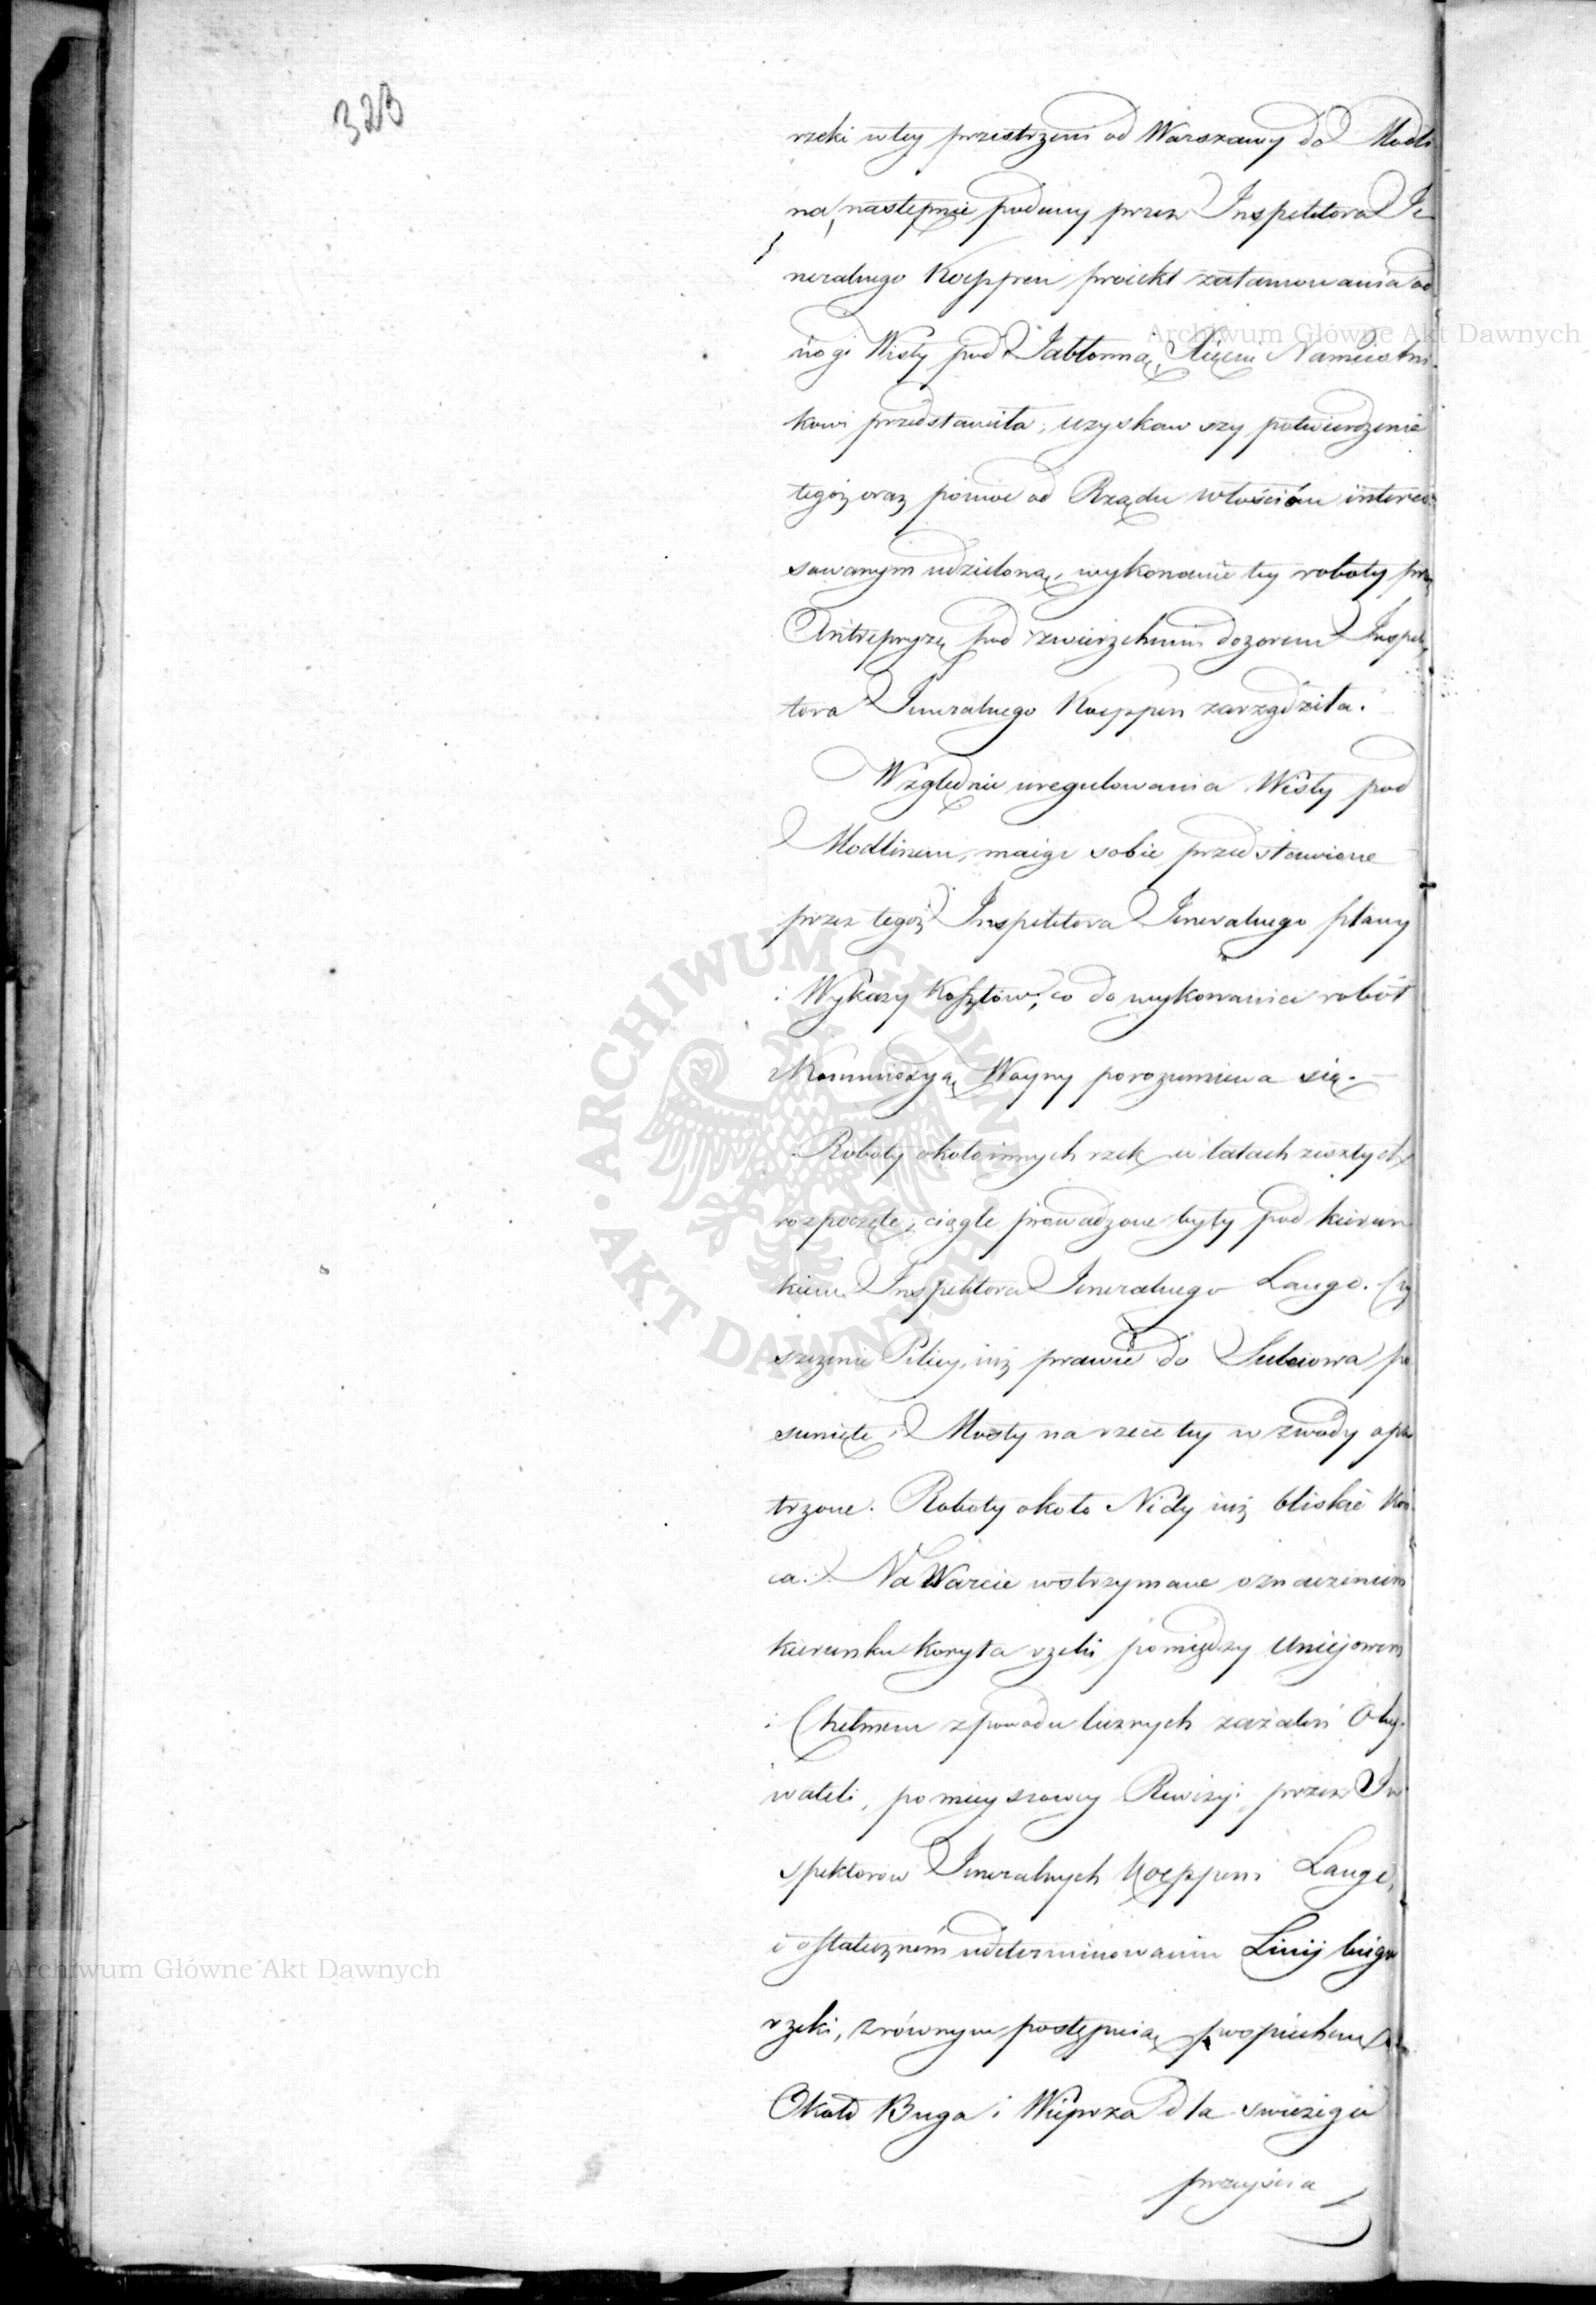 323
rzeki w tey przestrzeni od Warszawy do Modli
na, następnie podany przez Inspektora Je
neralnego Koeppen proiekt zatamowania od
nogi Wisły pod Jabłonną, Xięciu Namiestni
kowi przedstawiła, uzyskawszy potwierdzenie
tegóż oraz pomoc od Rządu włościom intere
sowanym udzieloną, wykonanie tey roboty przez
Antrepryzę pod zwierzchnim dozorem Inspek
tora Jeneralnego Koeppen zarządziła.
Względnie uregulowania Wisły pod
Modlinem, maiąc sobie przedstawione
przez tegoż Inspektora Jeneralnego plany
i Wykazy Kosztów, co do wykonania robót
z Kommissyą Woyny porozumiewa się.
Roboty około innych rzek w latach zeszłych
rozpoczęte, ciągle prowadzone były pod kierun
kiem Inspektora Jeneralnego Lange. Czy
szczenie Pilicy, iuż prawie do Sulejowa po
sunięte, Mosty na rzece tey w zwody opa
trzone. Roboty około Nidy iuż bliskie koń
ca. Na Warcie wstrzymane oznaczeniem
kierunku koryta rzeki pomiędzy Uniejowem
i Chełmem z powodu licznych zażaleń Oby
wateli, po mieyscowey Rewizyi przez In
spektorów Jeneralnych Koeppen i Lange,
i ostatecznem udeterminowaniu Linij biegu
rzeki, z równym postępuią pospiechem
Około Buga i Wieprza dla świeżego
przeyścia
Archiwum Główne Akt Dawnych
Archiwum Główne Akt Dawnych
ARCHIWUM GŁÓWNE AKT DAWNYCH